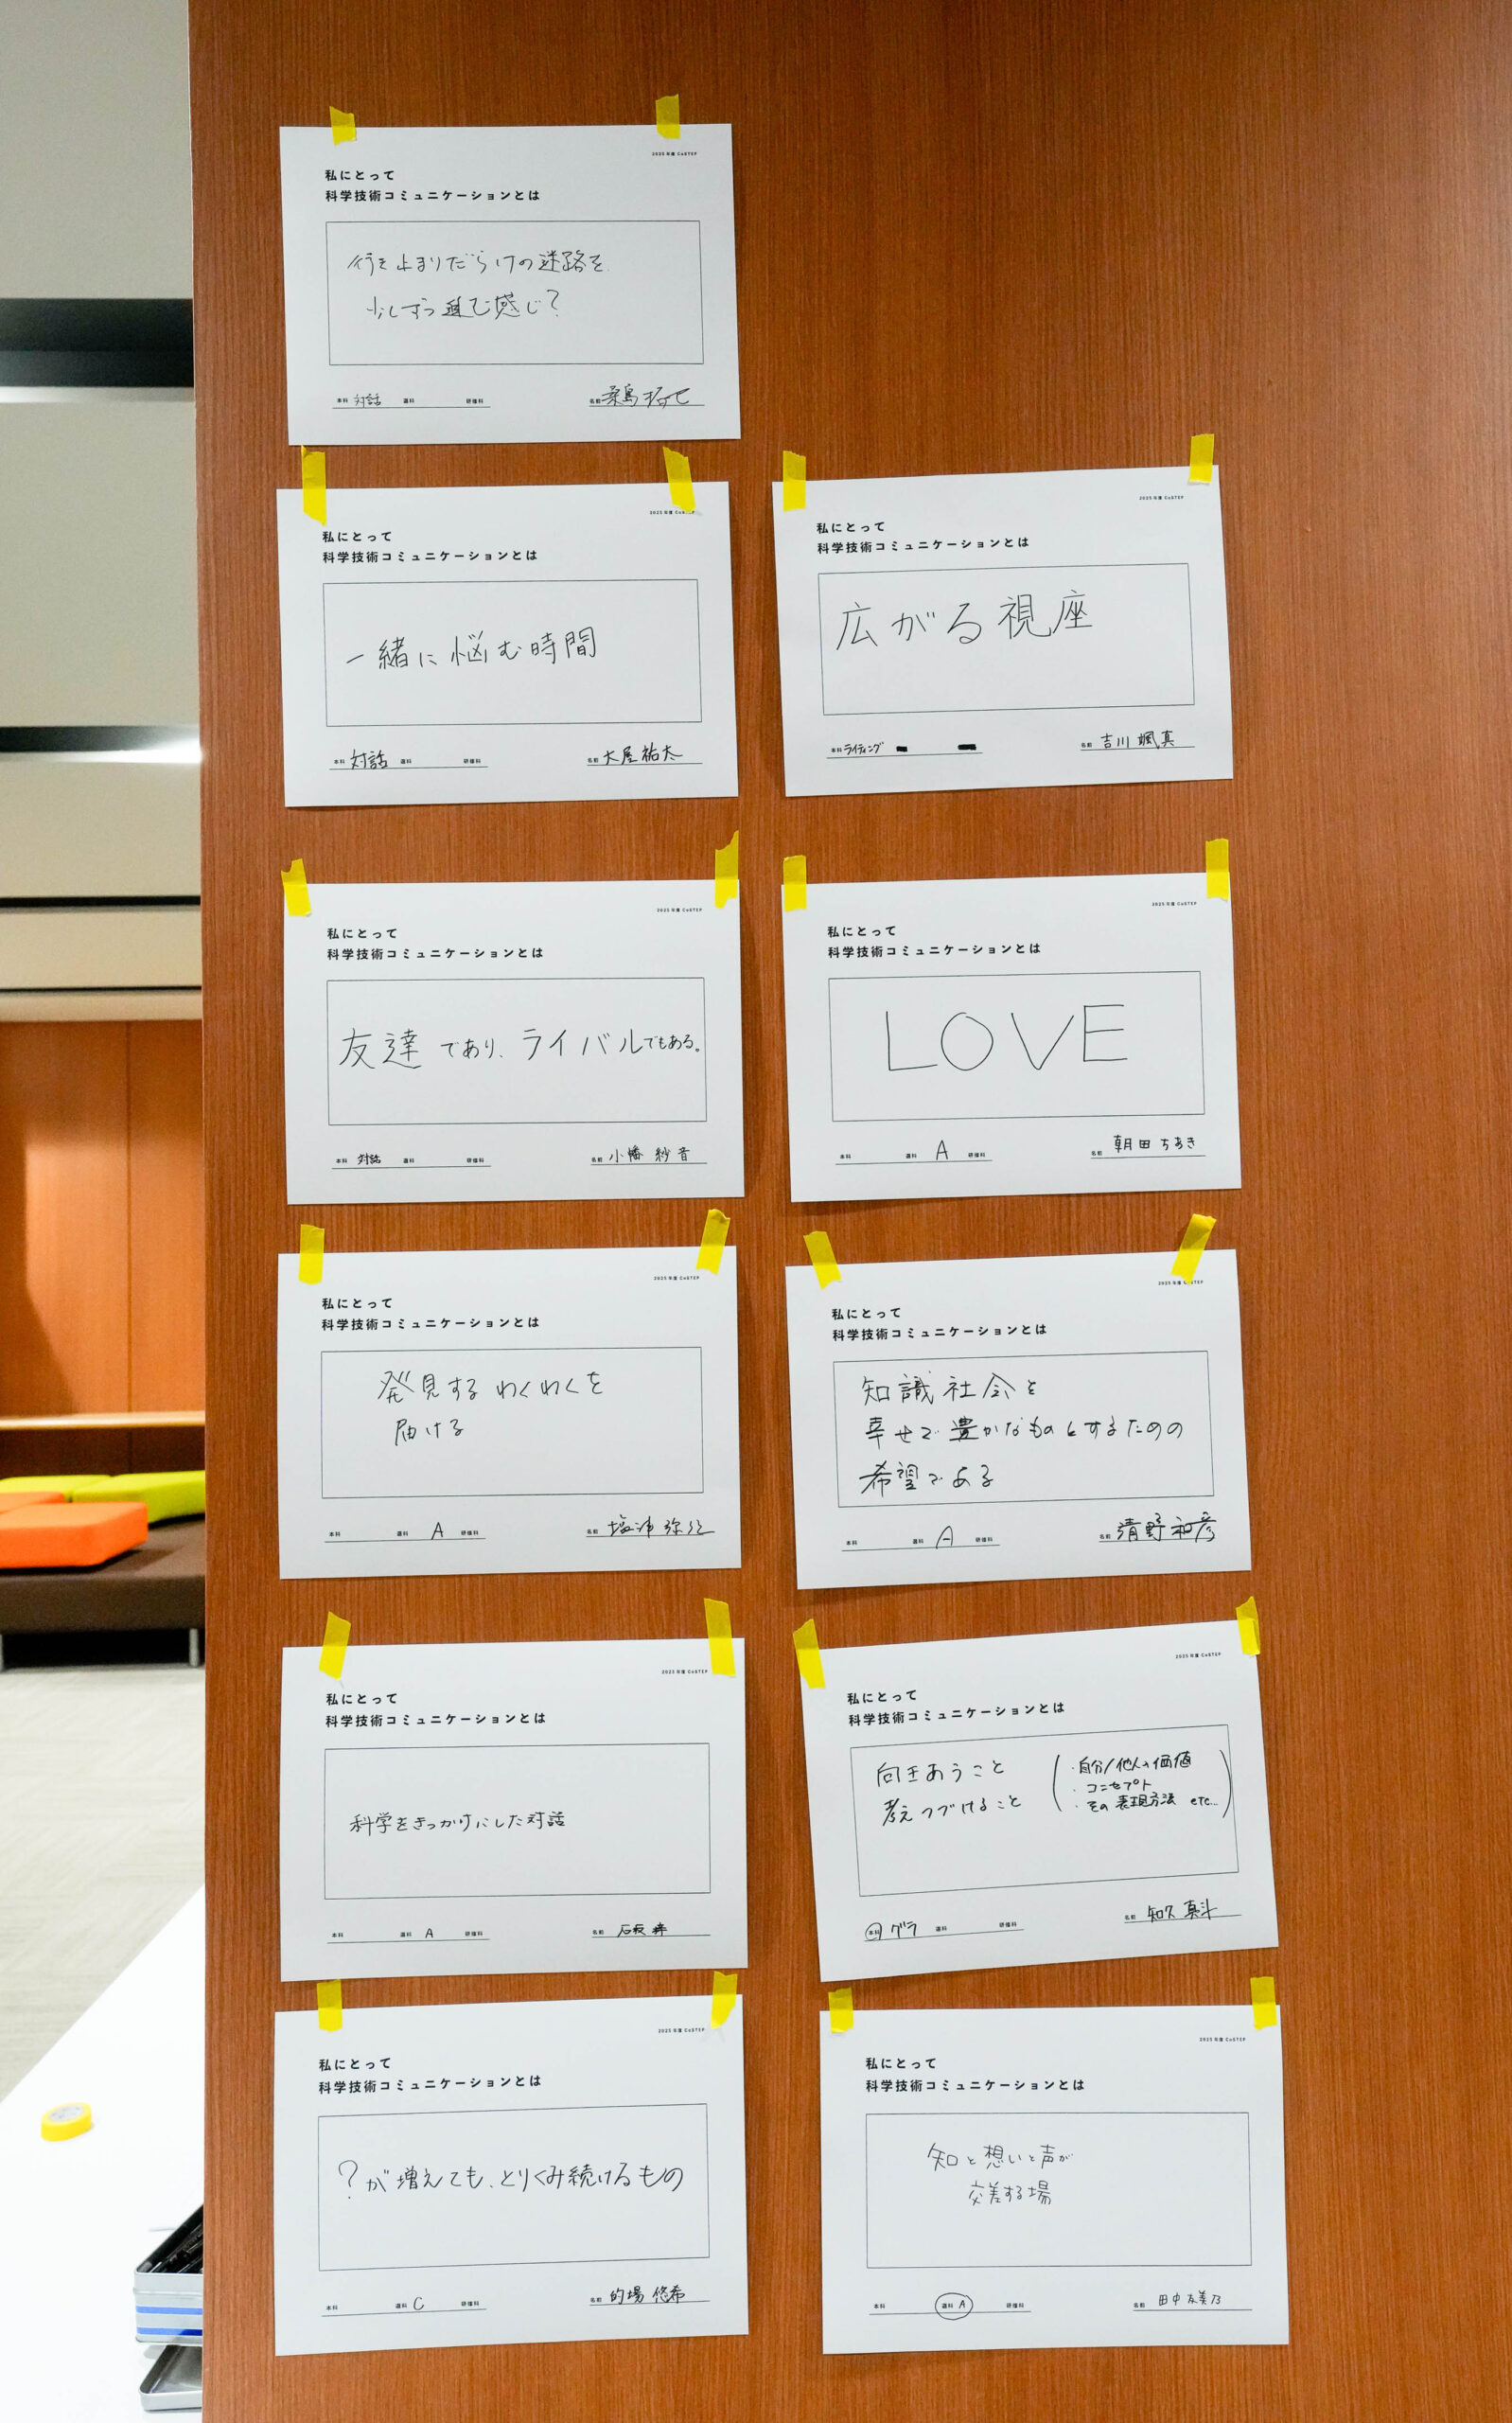 2025年度 CoSTEP
私にとって
科学技術コミュニケーションとは
行き止まりだらけの迷路を
少しずつ進む感じ?
本科 対話 選科 研修科
名前 桑島
2025年度 CoSTEP
私にとって
科学技術コミュニケーションとは
一緒に悩む時間
本科 対話 選科 研修科
名前 大屋祐太
2025年度 CoSTEP
私にとって
科学技術コミュニケーションとは
友達であり、ライバルでもある。
本科 対話 選科 研修科
名前 小幡 紗音
2025年度 CoSTEP
私にとって
科学技術コミュニケーションとは
発見するわくわくを
届ける
本科 選科 A 研修科
名前
2025年度 CoSTEP
私にとって
科学技術コミュニケーションとは
科学をきっかけにした対話
本科 選科 A 研修科
名前 石坂
2025年度 CoSTEP
私にとって
科学技術コミュニケーションとは
?が増えても、とりくみ続けるもの
本科 選科 C 研修科
名前 的場 悠希
2025年度 CoSTEP
私にとって
科学技術コミュニケーションとは
広がる視座
本科 ライティング
名前 吉川 颯真
2025年度 CoSTEP
私にとって
科学技術コミュニケーションとは
LOVE
本科 選科 A 研修科
名前 朝田 ちあき
2025年度 CoSTEP
私にとって
科学技術コミュニケーションとは
知識社会を
幸せで豊かなものとするための
希望である
本科 選科 A 研修科
名前 清野 和彦
2025年度 CoSTEP
私にとって
科学技術コミュニケーションとは
向きあうこと
考えつづけること
・自分/他人の価値
・コンセプト
・その表現方法 etc...
本科 グラ 選科 研修科
名前 知久 真斗
2025年度 CoSTEP
私にとって
科学技術コミュニケーションとは
知と想いと声が
交差する場
本科 選科 A 研修科
名前 田中 友美乃